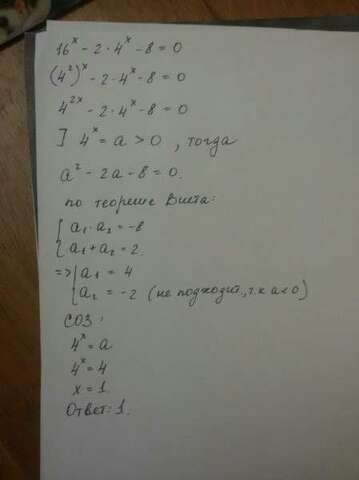 16^x - 2 · 4^x - 8 = 0
(4^2)^x - 2 · 4^x - 8 = 0
4^{2x} - 2 · 4^x - 8 = 0
] 4^x = a > 0 , тогда
a^2 - 2a - 8 = 0.
по теореме Виета:
{ a_1 · a_2 = -8
{ a_1 + a_2 = 2.
=> [ a_1 = 4
[ a_2 = -2 (не подходит, т к a < 0)
СОЗ :
4^x = a
4^x = 4
x = 1.
Ответ: 1.